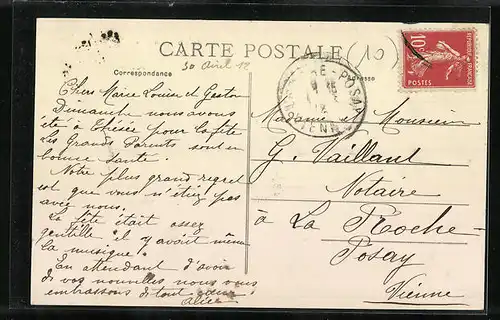 CARTE POSTALE
(10)
30 Avril 12
Correspondance
RÉPUBLIQUE FRANÇAISE
10c
POSTES
Chers Marie Louise et Gaston
Dimanche nous avons
été à Thésée pour la fête
Les Grands Parents sont en
bonne santé.
Notre plus grand regret
est que vous n'étiez pas
avec nous.
La fête était assez
gentille "il y avait même
la musique".
En attendant d'avoir
de vos nouvelles nous vous
embrassons de tout cœur
Alice
Madame Monsieur
G. Vaillant
Notaire
à La Roche-
Posay
Vienne